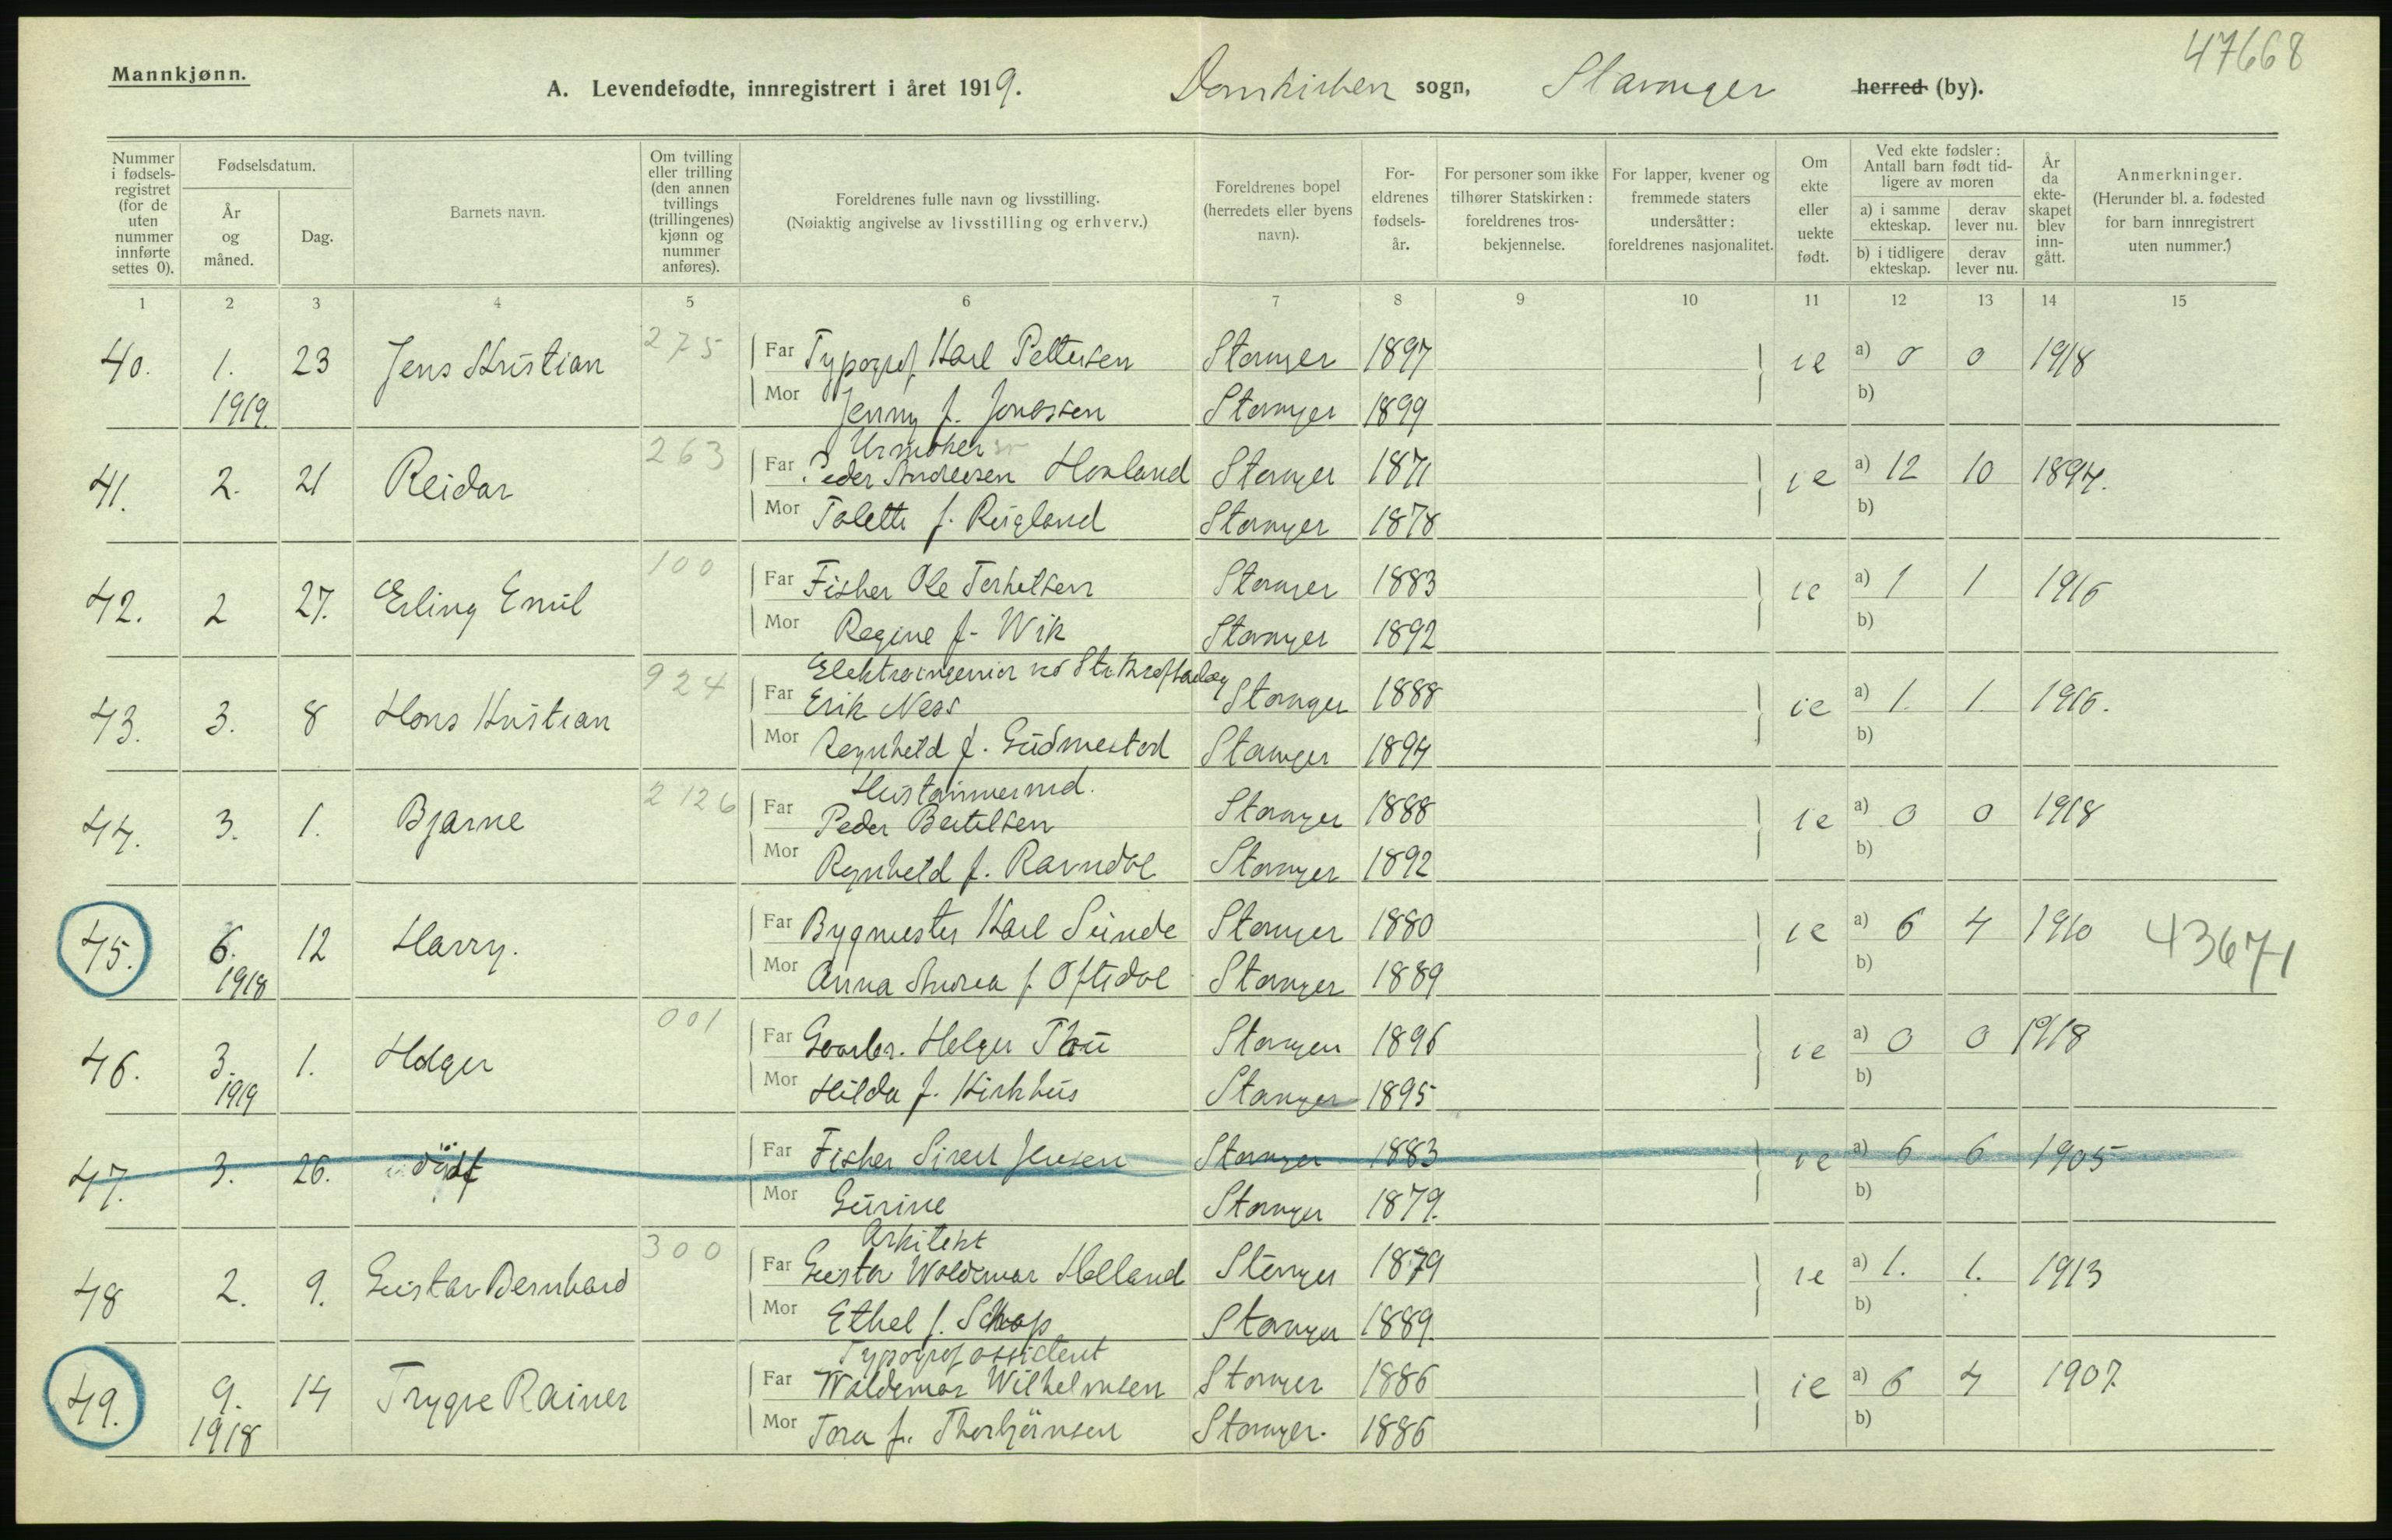 47668
Mannkjønn.
A. Levendefødte, innregistrert i året 1919. Domkirken sogn, Stavanger herred (by).
Nummer i fødselsregistret (for de uten nummer innførte settes 0).
Fødselsdatum.
År og måned.
Dag.
Barnets navn.
Om tvilling eller trilling (den annen tvillings (trillingenes) kjønn og nummer anføres).
Foreldrenes fulle navn og livsstilling.
(Nøiaktig angivelse av livsstilling og erhverv.)
Foreldrenes bopel (herredets eller byens navn).
Foreldrenes fødselsår.
For personer som ikke tilhører Statskirken: foreldrenes trosbekjennelse.
For lapper, kvener og fremmede staters undersåtter: foreldrenes nasjonalitet.
Om ekte eller uekte født.
Ved ekte fødsler: Antall barn født tidligere av moren
a) i samme ekteskap. derav lever nu.
b) i tidligere ekteskap. derav lever nu.
År da ekteskapet blev inngått.
Anmerkninger.
(Herunder bl. a. fødested for barn innregistrert uten nummer.)
1 2 3 4 5 6 7 8 9 10 11 12 13 14 15
40. 1. 23 Jens Kristian 275 Far Typograf Karl Pettersen Stavanger 1897 ie a) 0 0 1918
1919. Mor Jenny f. Jonassen Stavanger 1899 b)
Urmaker
41. 2. 21 Reidar 263 Far Peder Andreesen Hovland Stavanger 1871 ie a) 12 10 1897.
Mor Talette f. Reigland Stavanger 1878 b)
42. 2 27. Erling Emil 100 Far Fisker Ole Terkelsen Stavanger 1883 ie a) 1 1 1916
Mor Regine f. Wik Stavanger 1892 b)
Elektroingeniør ved
43. 3. 8 Hans Kristian 924 Far Erik Ness Stavanger 1888 ie a) 1. 1. 1916.
Mor Ragnhild f. Gudmestad Stavanger 1894 b)
Hustømmermd.
44. 3. 1. Bjarne 2126 Far Peder Bertelsen Stavanger 1888 ie a) 0 0 1918
Mor Ragnhild f. Ravndal Stavanger 1892 b)
45. 6. 12 Harry. Far Bygmester Karl Sunde Stavanger 1880 ie a) 6 4 1910 43671
1918 Mor Anna Andrea f. Oftedal Stavanger 1889 b)
46. 3. 1. Holger 001 Far Gaarbr. Helger Thu Stavanger 1896 ie a) 0 0 1918
1919 Mor Hilda f. Kirkhus Stavanger 1895 b)
47. 3. 26. udøbt Far Fisker Sivert Jensen Stavanger 1883 ie a) 6 6 1905
Mor Gurine Stavanger 1879. b)
Arkitekt
48 2. 9. Gustav Bernhard 300 Far Gustav Waldemar Helland Stavanger 1879 ie a) 1. 1. 1913
Mor Ethel f. Stavanger 1889. b)
Typograf assistent
49. 9. 14 Trygve Rainer Far Waldemar Wilhelmsen Stavanger 1886 ie a) 6 4 1907.
1918 Mor Tora f. Thorbjörnsen Stavanger. 1886 b)